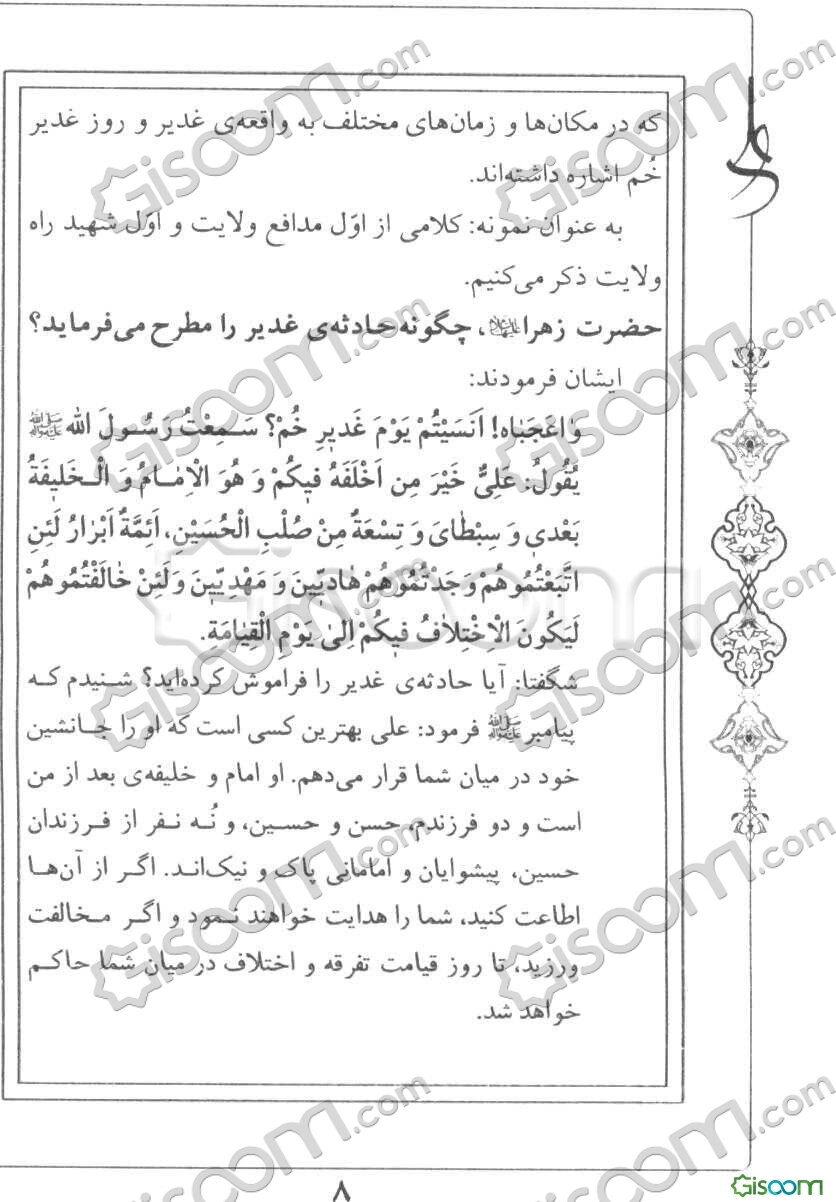 که در مکان‌ها و زمان‌های مختلف به واقعه‌ی غدیر و روز غدیر
خُم اشاره داشته‌اند.
به عنوان نمونه: کلامی از اوّل مدافع ولایت و اوّل شهید راه
ولایت ذکر می‌کنیم.
حضرت زهرا علیهاالسلام، چگونه حادثه‌ی غدیر را مطرح می‌فرماید؟
ایشان فرمودند:
وٰاعَجَبٰاه! اَنَسَیْتُمْ یَوْمَ غَدیرِ خُمْ؟ سَمِعْتُ رَسُولَ الله ﷺ
یَقُولُ: عَلِیٌّ خَیْرَ مِن اَخْلَفَهُ فیکُمْ وَ هُوَ الْاِمٰامُ وَ الْخَلیفَةُ
بَعْدی وَ سِبْطٰایَ وَ تِسْعَةٌ مِنْ صُلْبِ الْحُسَیْنِ، اَئِمَّةٌ اَبْرٰارُ لَئِنِ
اتَّبَعْتُمُوهُمْ وَجَدْتُمُوهُمْ هٰادیّینَ وَ مَهْدِیّینَ وَ لَئِنْ خٰالَفْتُمُوهُمْ
لَیَکُونَ الْاِخْتِلاٰفُ فیکُمْ اِلیٰ یَوْمِ الْقِیٰامَةِ.
شگفتا: آیا حادثه‌ی غدیر را فراموش کرده‌اید؟ شنیدم که
پیامبر ﷺ فرمود: علی بهترین کسی است که او را جانشین
خود در میان شما قرار می‌دهم. او امام و خلیفه‌ی بعد از من
است و دو فرزندم، حسن و حسین، و نُه نفر از فرزندان
حسین، پیشوایان و امامانی پاک و نیک‌اند. اگر از آن‌ها
اطاعت کنید، شما را هدایت خواهند نمود و اگر مخالفت
ورزید، تا روز قیامت تفرقه و اختلاف در میان شما حاکم
خواهد شد.
۸
Gisoom
Gisoom.com